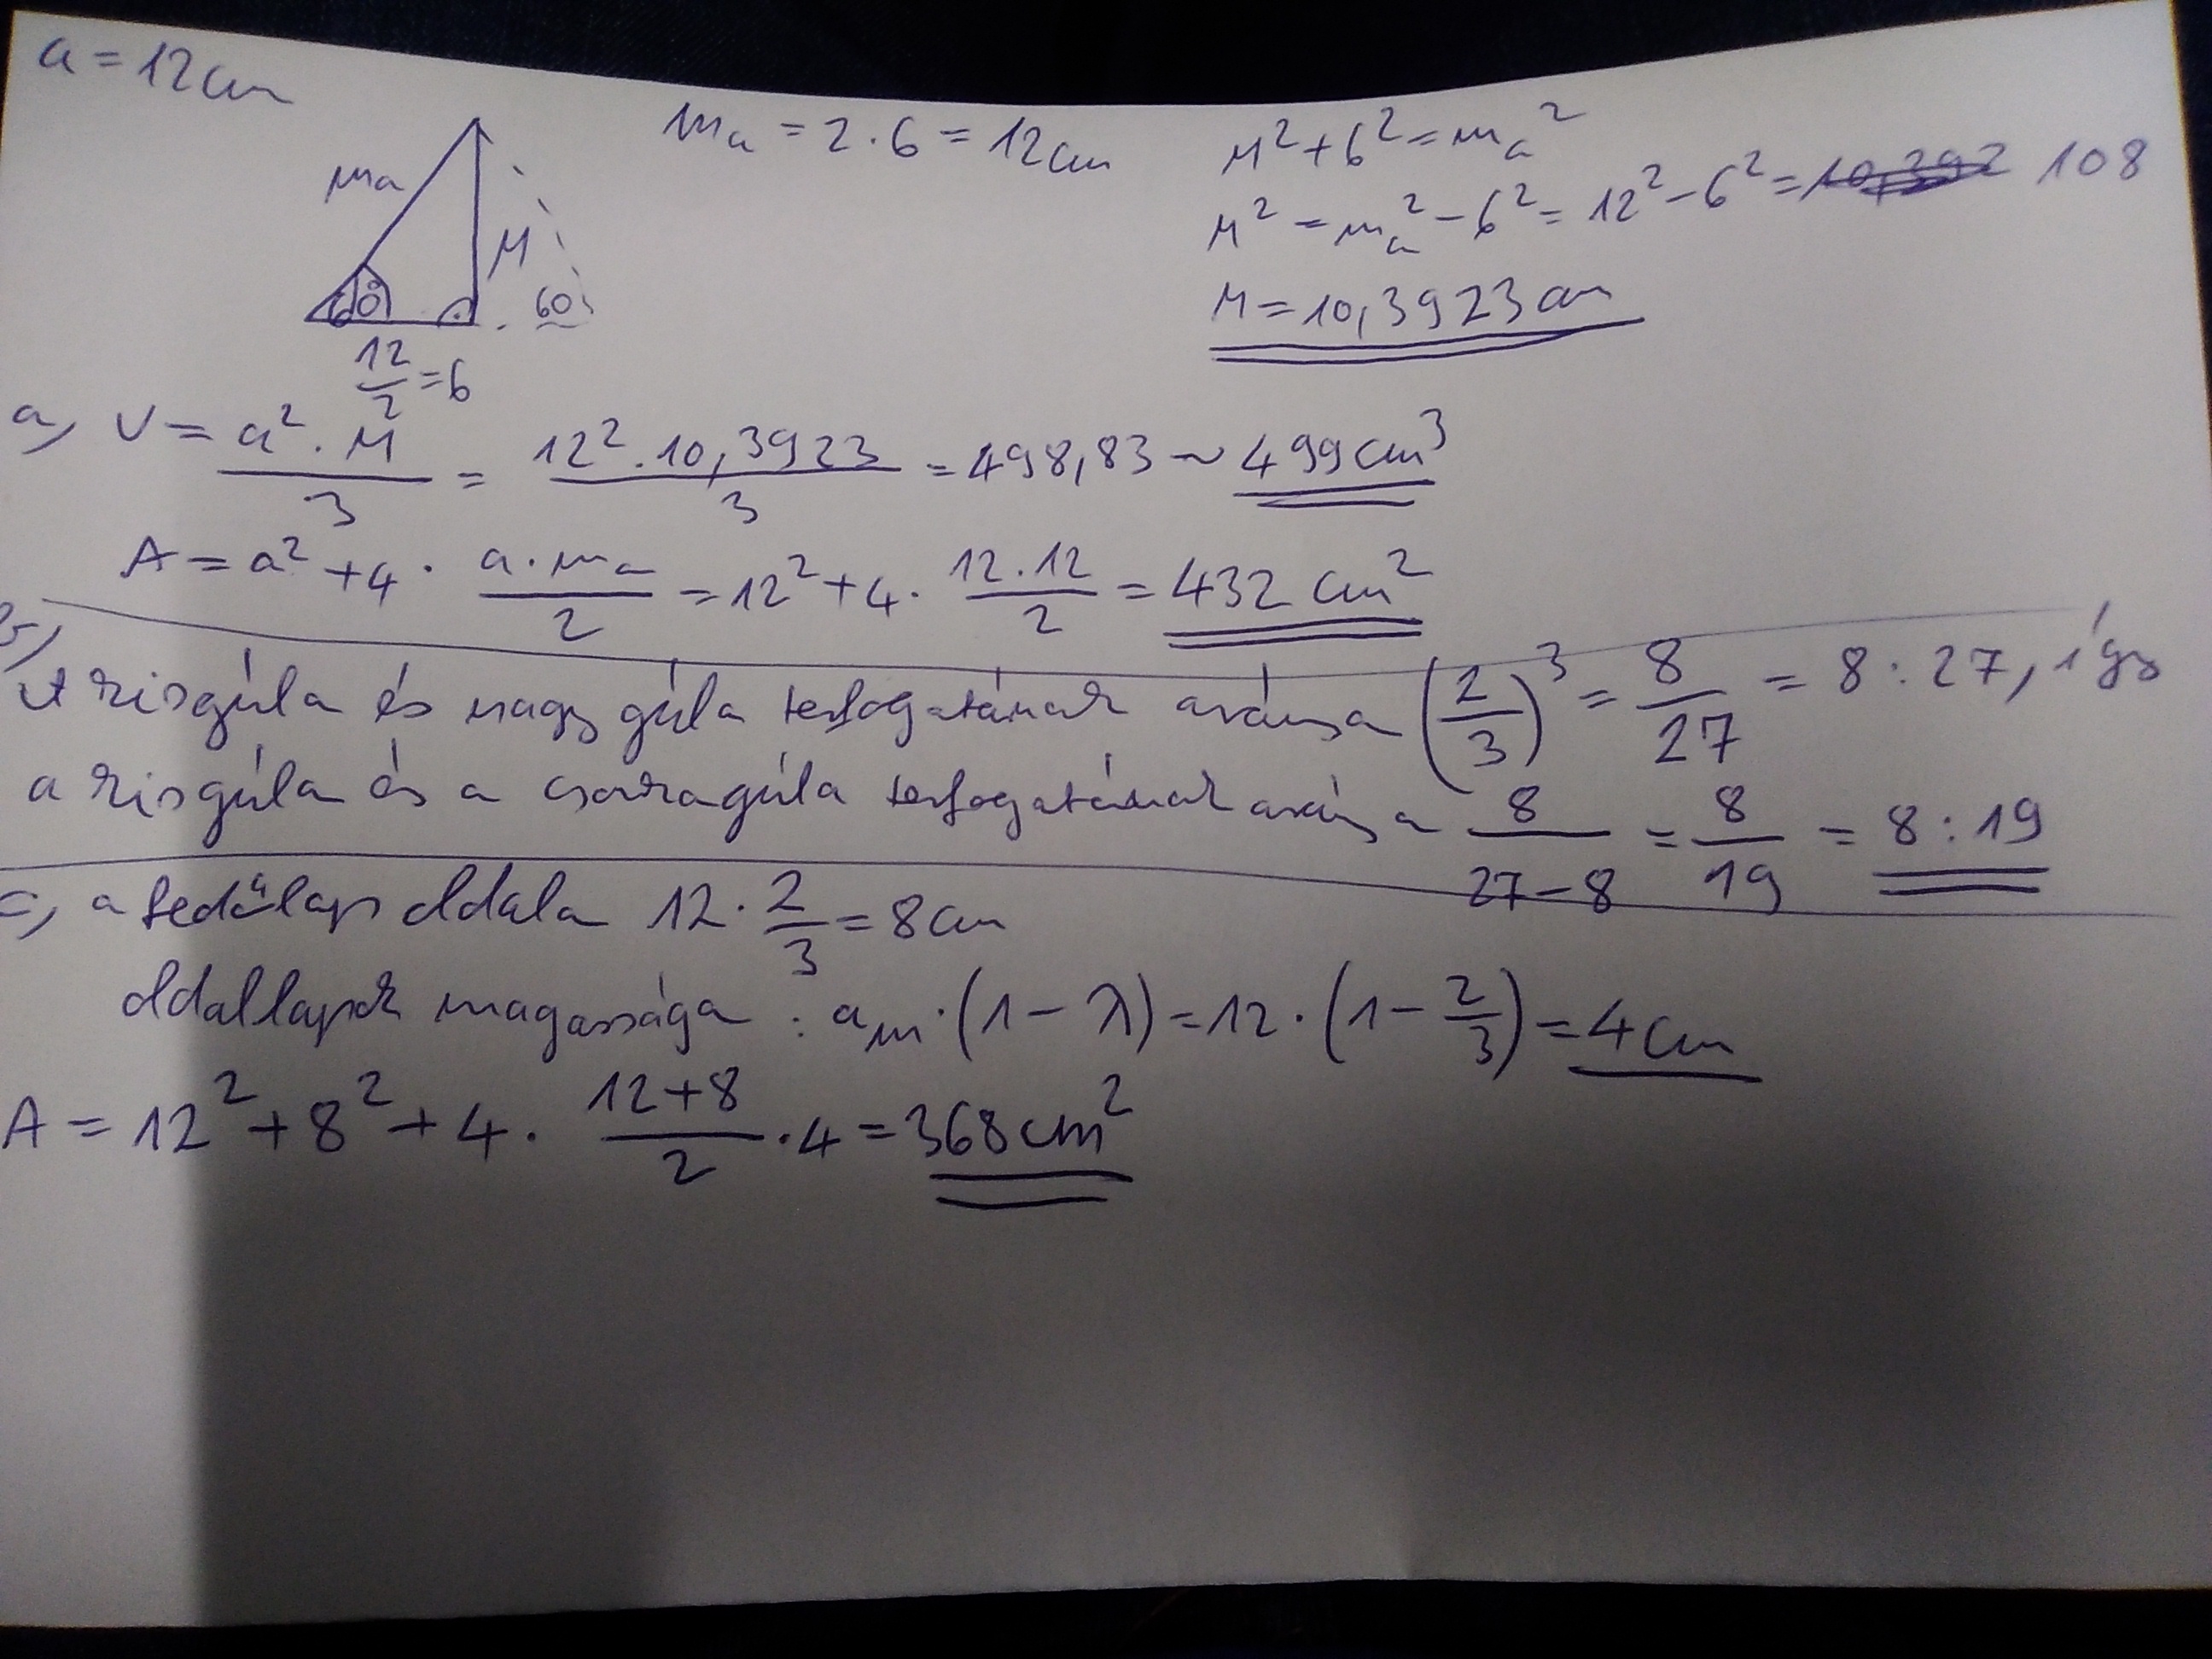 a = 12 cm
mₐ = 2 · 6 = 12 cm
M² + 6² = mₐ²
M² = mₐ² - 6² = 12² - 6² = 108
M = 10,3923 cm
mₐ
M
60°
60°
12/2 = 6
a, V = a² · M / 3 = 12² · 10,3923 / 3 = 498,83 ~ 499 cm³
A = a² + 4 · a · mₐ / 2 = 12² + 4 · 12 · 12 / 2 = 432 cm²
b,
A kisgúla és nagy gúla térfogatának aránya (2/3)³ = 8/27 = 8 : 27, így
a kisgúla és a csonkagúla térfogatának aránya 8/(27-8) = 8/19 = 8 : 19
c, a fedőlap oldala 12 · 2/3 = 8 cm
oldallapok magassága : aₘ · (1 - λ) = 12 · (1 - 2/3) = 4 cm
A = 12² + 8² + 4 · (12+8)/2 · 4 = 368 cm²